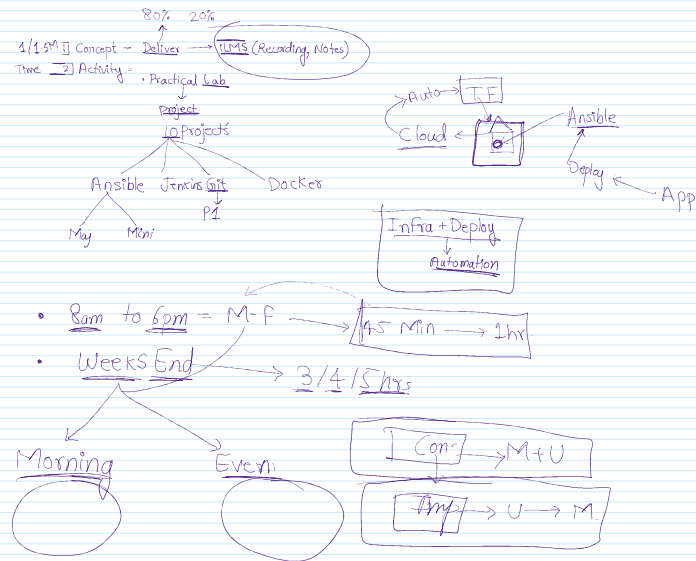 80% 20%
1/1.5M 1] Concept - Deliver → iLMS (Recording, Notes)
Time 2] Activity =
• Practical Lab
project
10 Projects
Ansible Jenkins Git Docker
P1
Maj Mini
Auto → T.F
Cloud
Ansible
Deploy
App
Infra + Deploy
Automation
• 8am to 6pm = M-F → 45 Min → 1hr
• Weeks End → 3/4/5 hrs
Morning Even:
Con → M+U
Imp → U → M